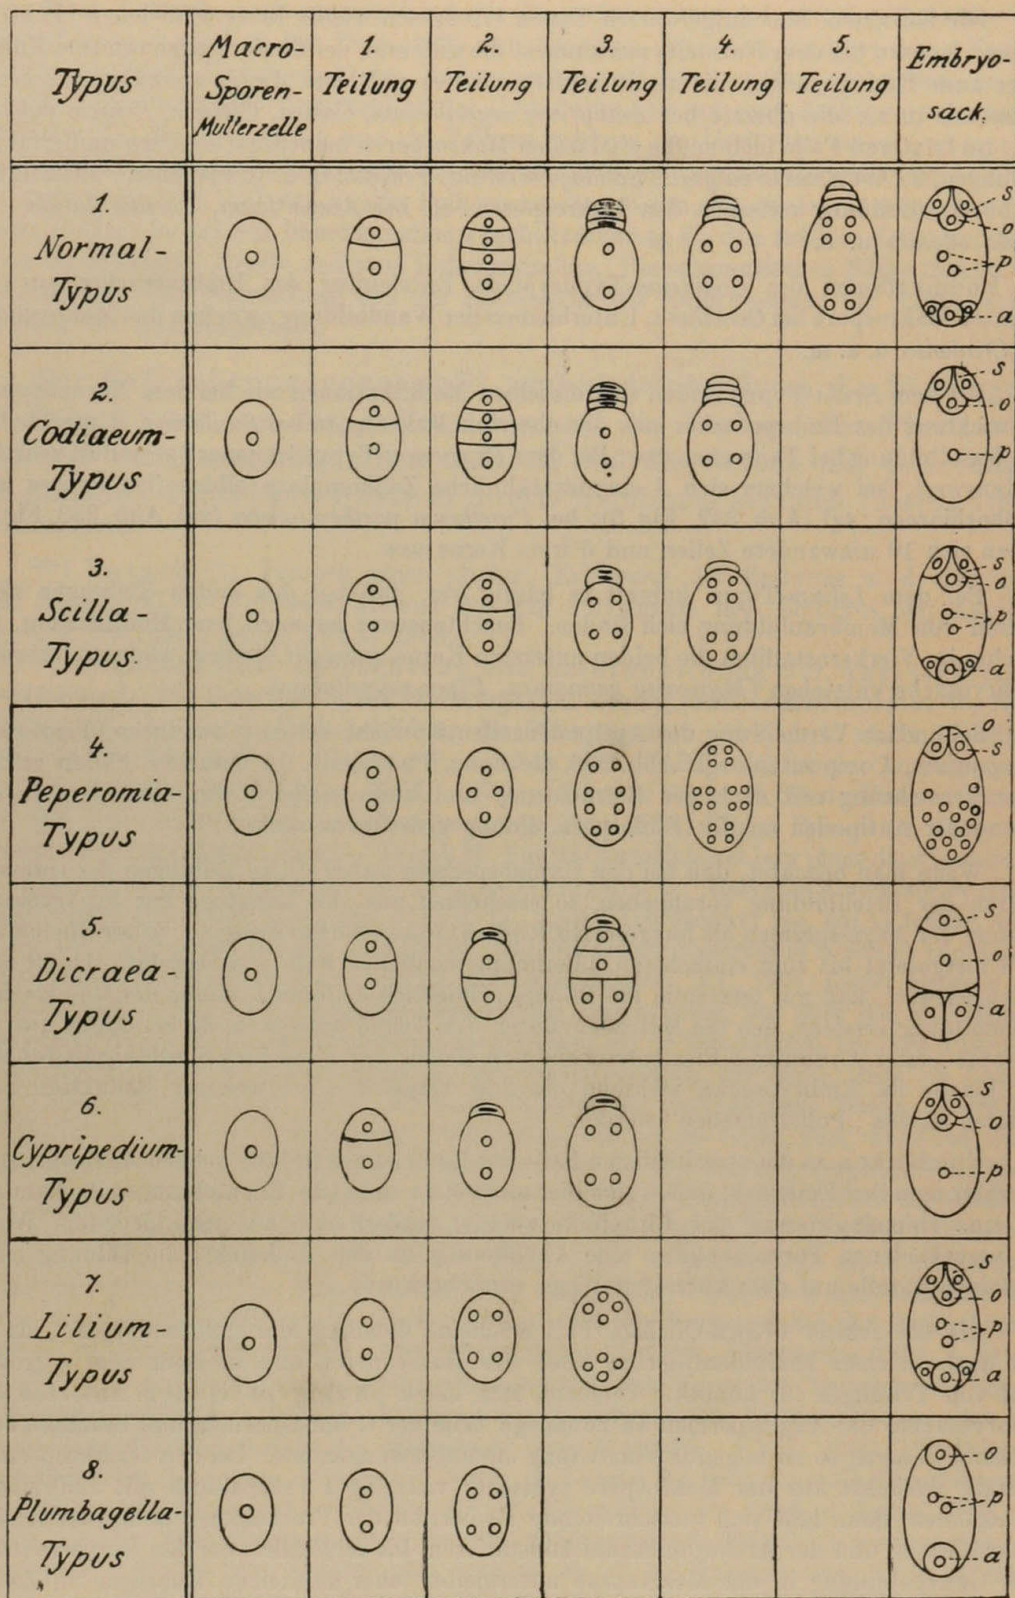 Typus
Macro-
Sporen-
Mutterzelle
1.
Teilung
2.
Teilung
3.
Teilung
4.
Teilung
5.
Teilung
Embryo-
sack.
1.
Normal-
Typus
s
o
p
a
2.
Codiaeum-
Typus
s
o
p
3.
Scilla-
Typus.
s
o
p
a
4.
Peperomia-
Typus
o
s
5.
Dicraea-
Typus
s
o
a
6.
Cypripedium-
Typus
s
o
p
7.
Lilium-
Typus
s
o
p
a
8.
Plumbagella-
Typus
o
p
a